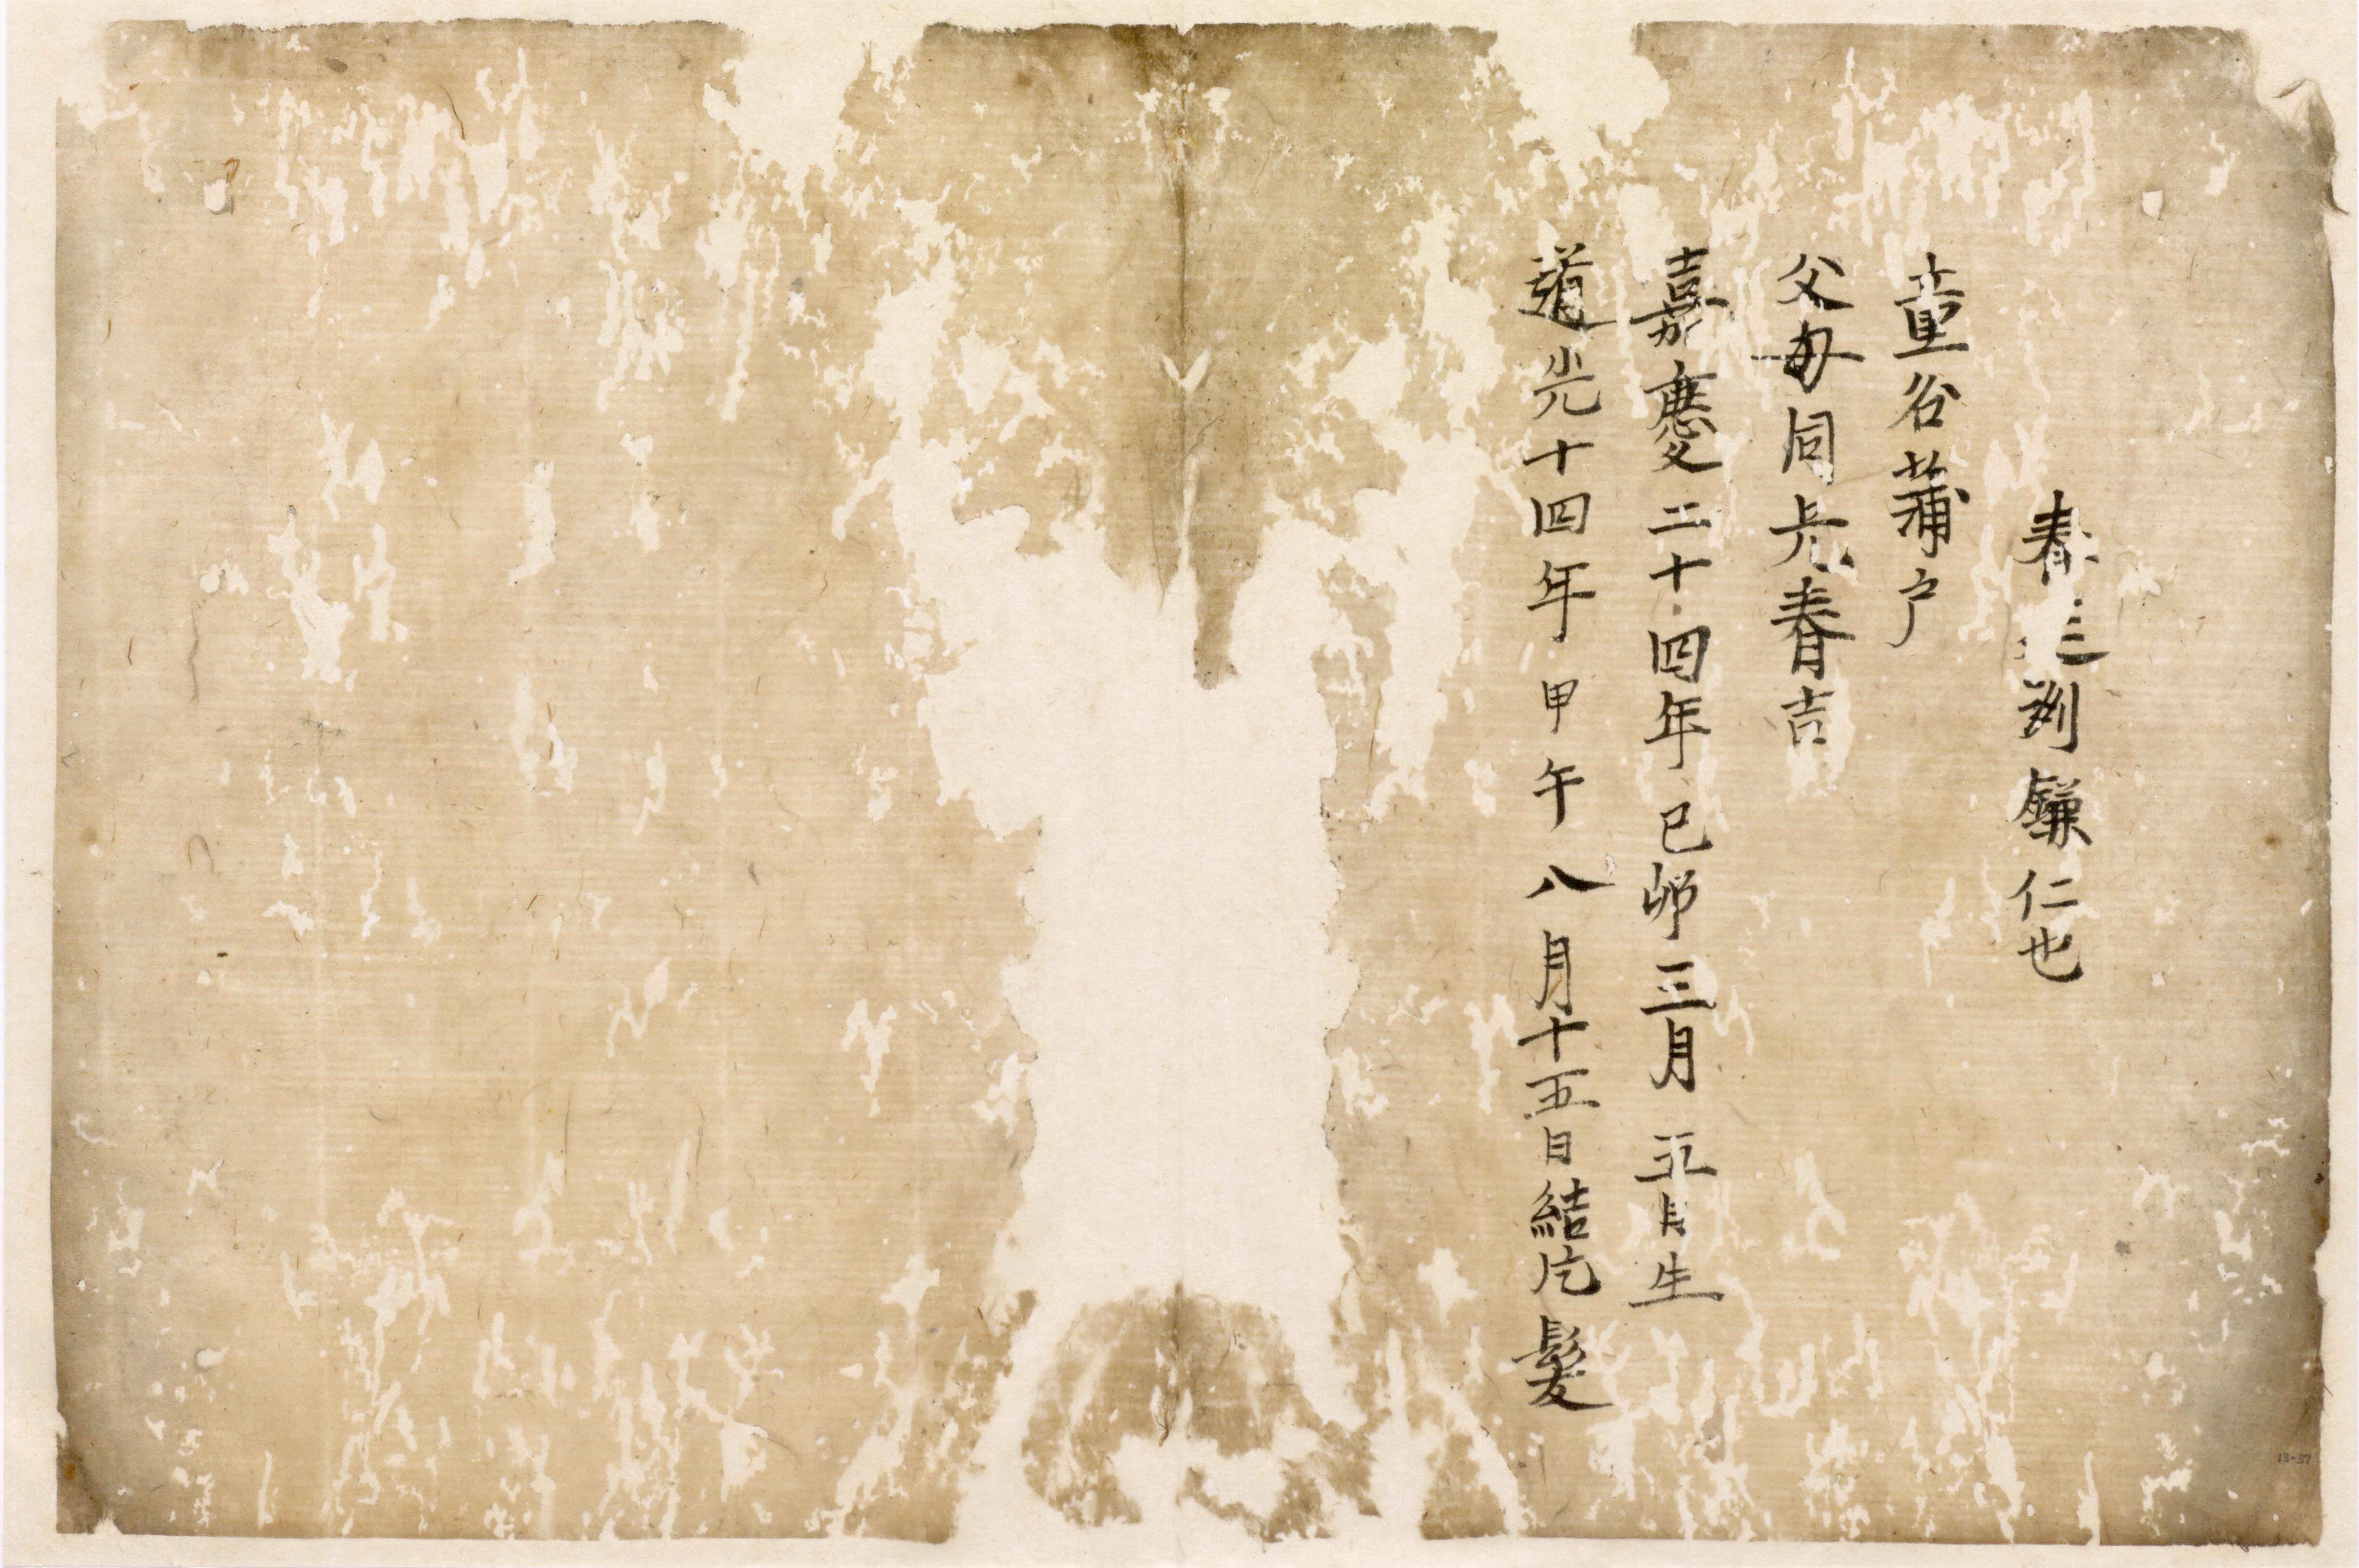 春鎌仁也
童名蒲戸
父母同春吉
嘉慶二十四年己卯三月日生
道光十四年甲午八月十五日結片髪
13-37